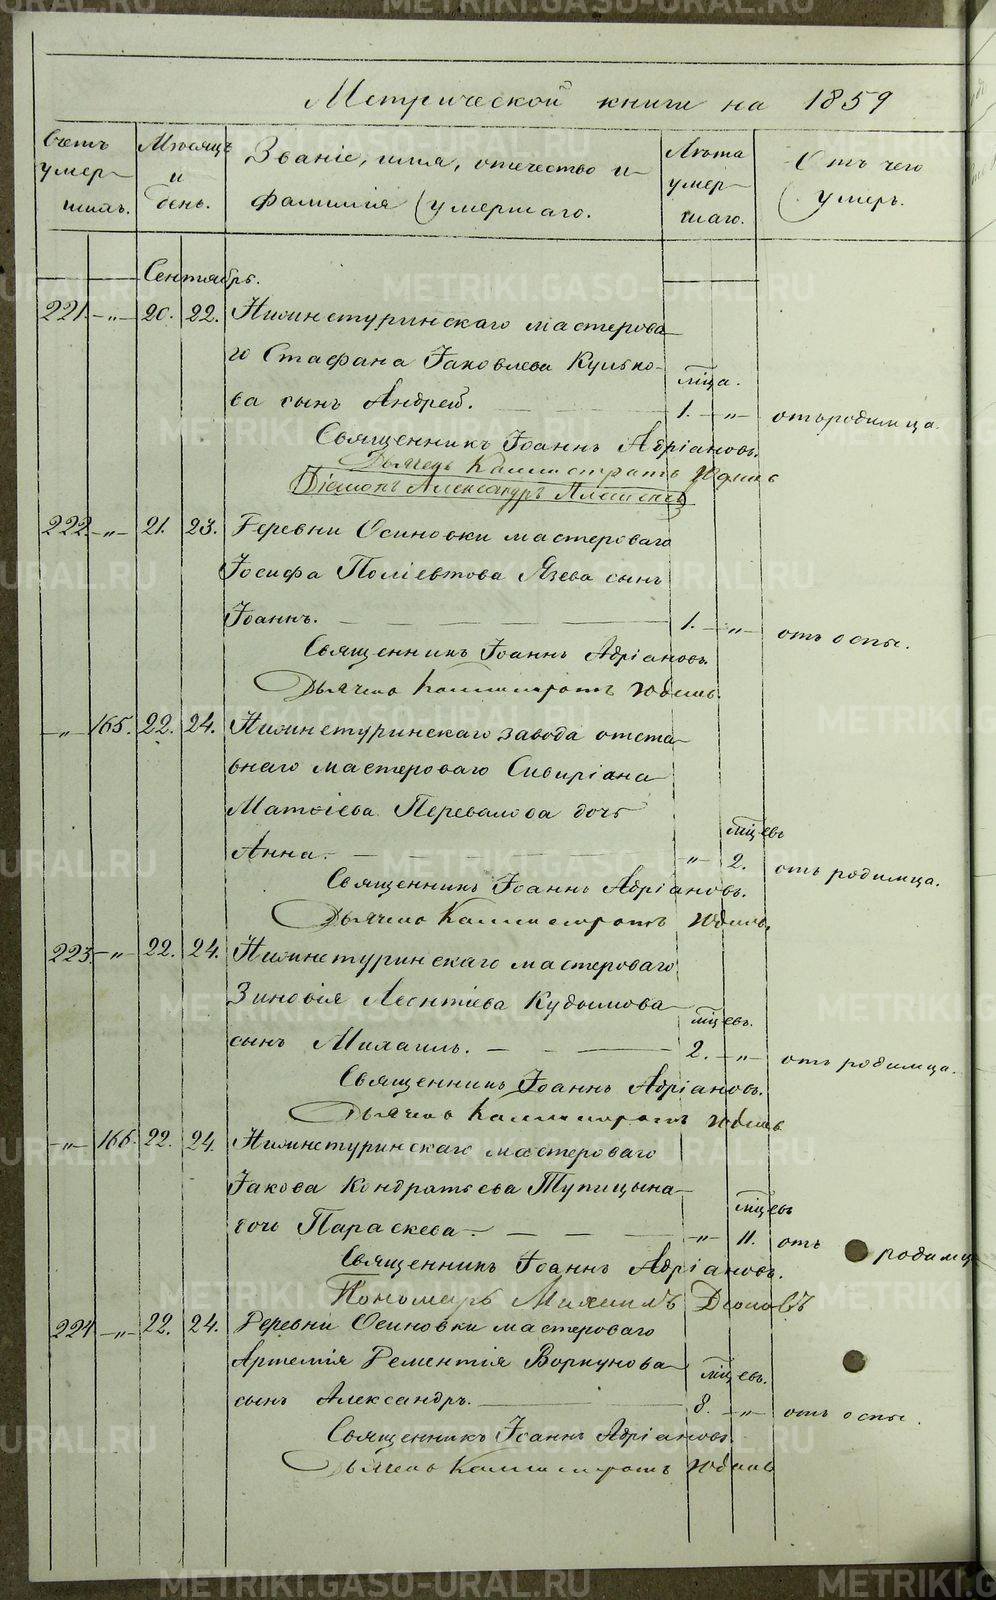 Метрической книги на 1859
Счетъ умер-шихъ.
Мѣсяцъ и день.
Званіе, имя, отечество и фамилія умершаго.
Лѣта умер-шаго.
Отъ чего умеръ.
Сентябрь.
221. -„- 20. 22. Нижнетуринскаго мастерова-
го Стафана Іаковлева Кулько-
мѣца.
ва сынъ Андрей. 1. -„- отъ родимца.
Священникъ Іоаннъ Адріановъ.
Дьячекъ Каллистратъ
Діаконъ Александръ
222. -„- 21. 23. Деревни Осиновки мастероваго
Іосифа Поліевтова Язева сынъ
Іоаннъ. 1. -„- отъ оспы.
Священникъ Іоаннъ Адріановъ.
Дьячекъ Каллистратъ
-„- 165. 22. 24. Нижнетуринскаго завода отста-
внаго мастероваго Сивиріана
Матѳіева Перевалова дочь
мѣцевъ
Анна. „ 2. отъ родимца.
Священникъ Іоаннъ Адріановъ.
Дьячекъ Каллистратъ
223. -„- 22. 24. Нижнетуринскаго мастероваго
Зиновія Леонтіева Кудымова
мѣцевъ.
сынъ Михаилъ. 2. -„- отъ родимца.
Священникъ Іоаннъ Адріановъ.
Дьячекъ Каллистратъ
-„- 166. 22. 24. Нижнетуринскаго мастероваго
Іакова Кондратьева Тупицына
мѣцевъ
дочь Параскева. -„- 11. отъ родимц
Священникъ Іоаннъ Адріановъ.
Пономарь Михаилъ
224 -„- 22. 24. Деревни Осиновки мастероваго
Артемія Дементія Воркунова
мѣцевъ.
сынъ Александръ. 8. -„- отъ оспы.
Священникъ Іоаннъ Адріановъ.
Дьячекъ Каллистратъ
METRIKI.GASO-URAL.RU